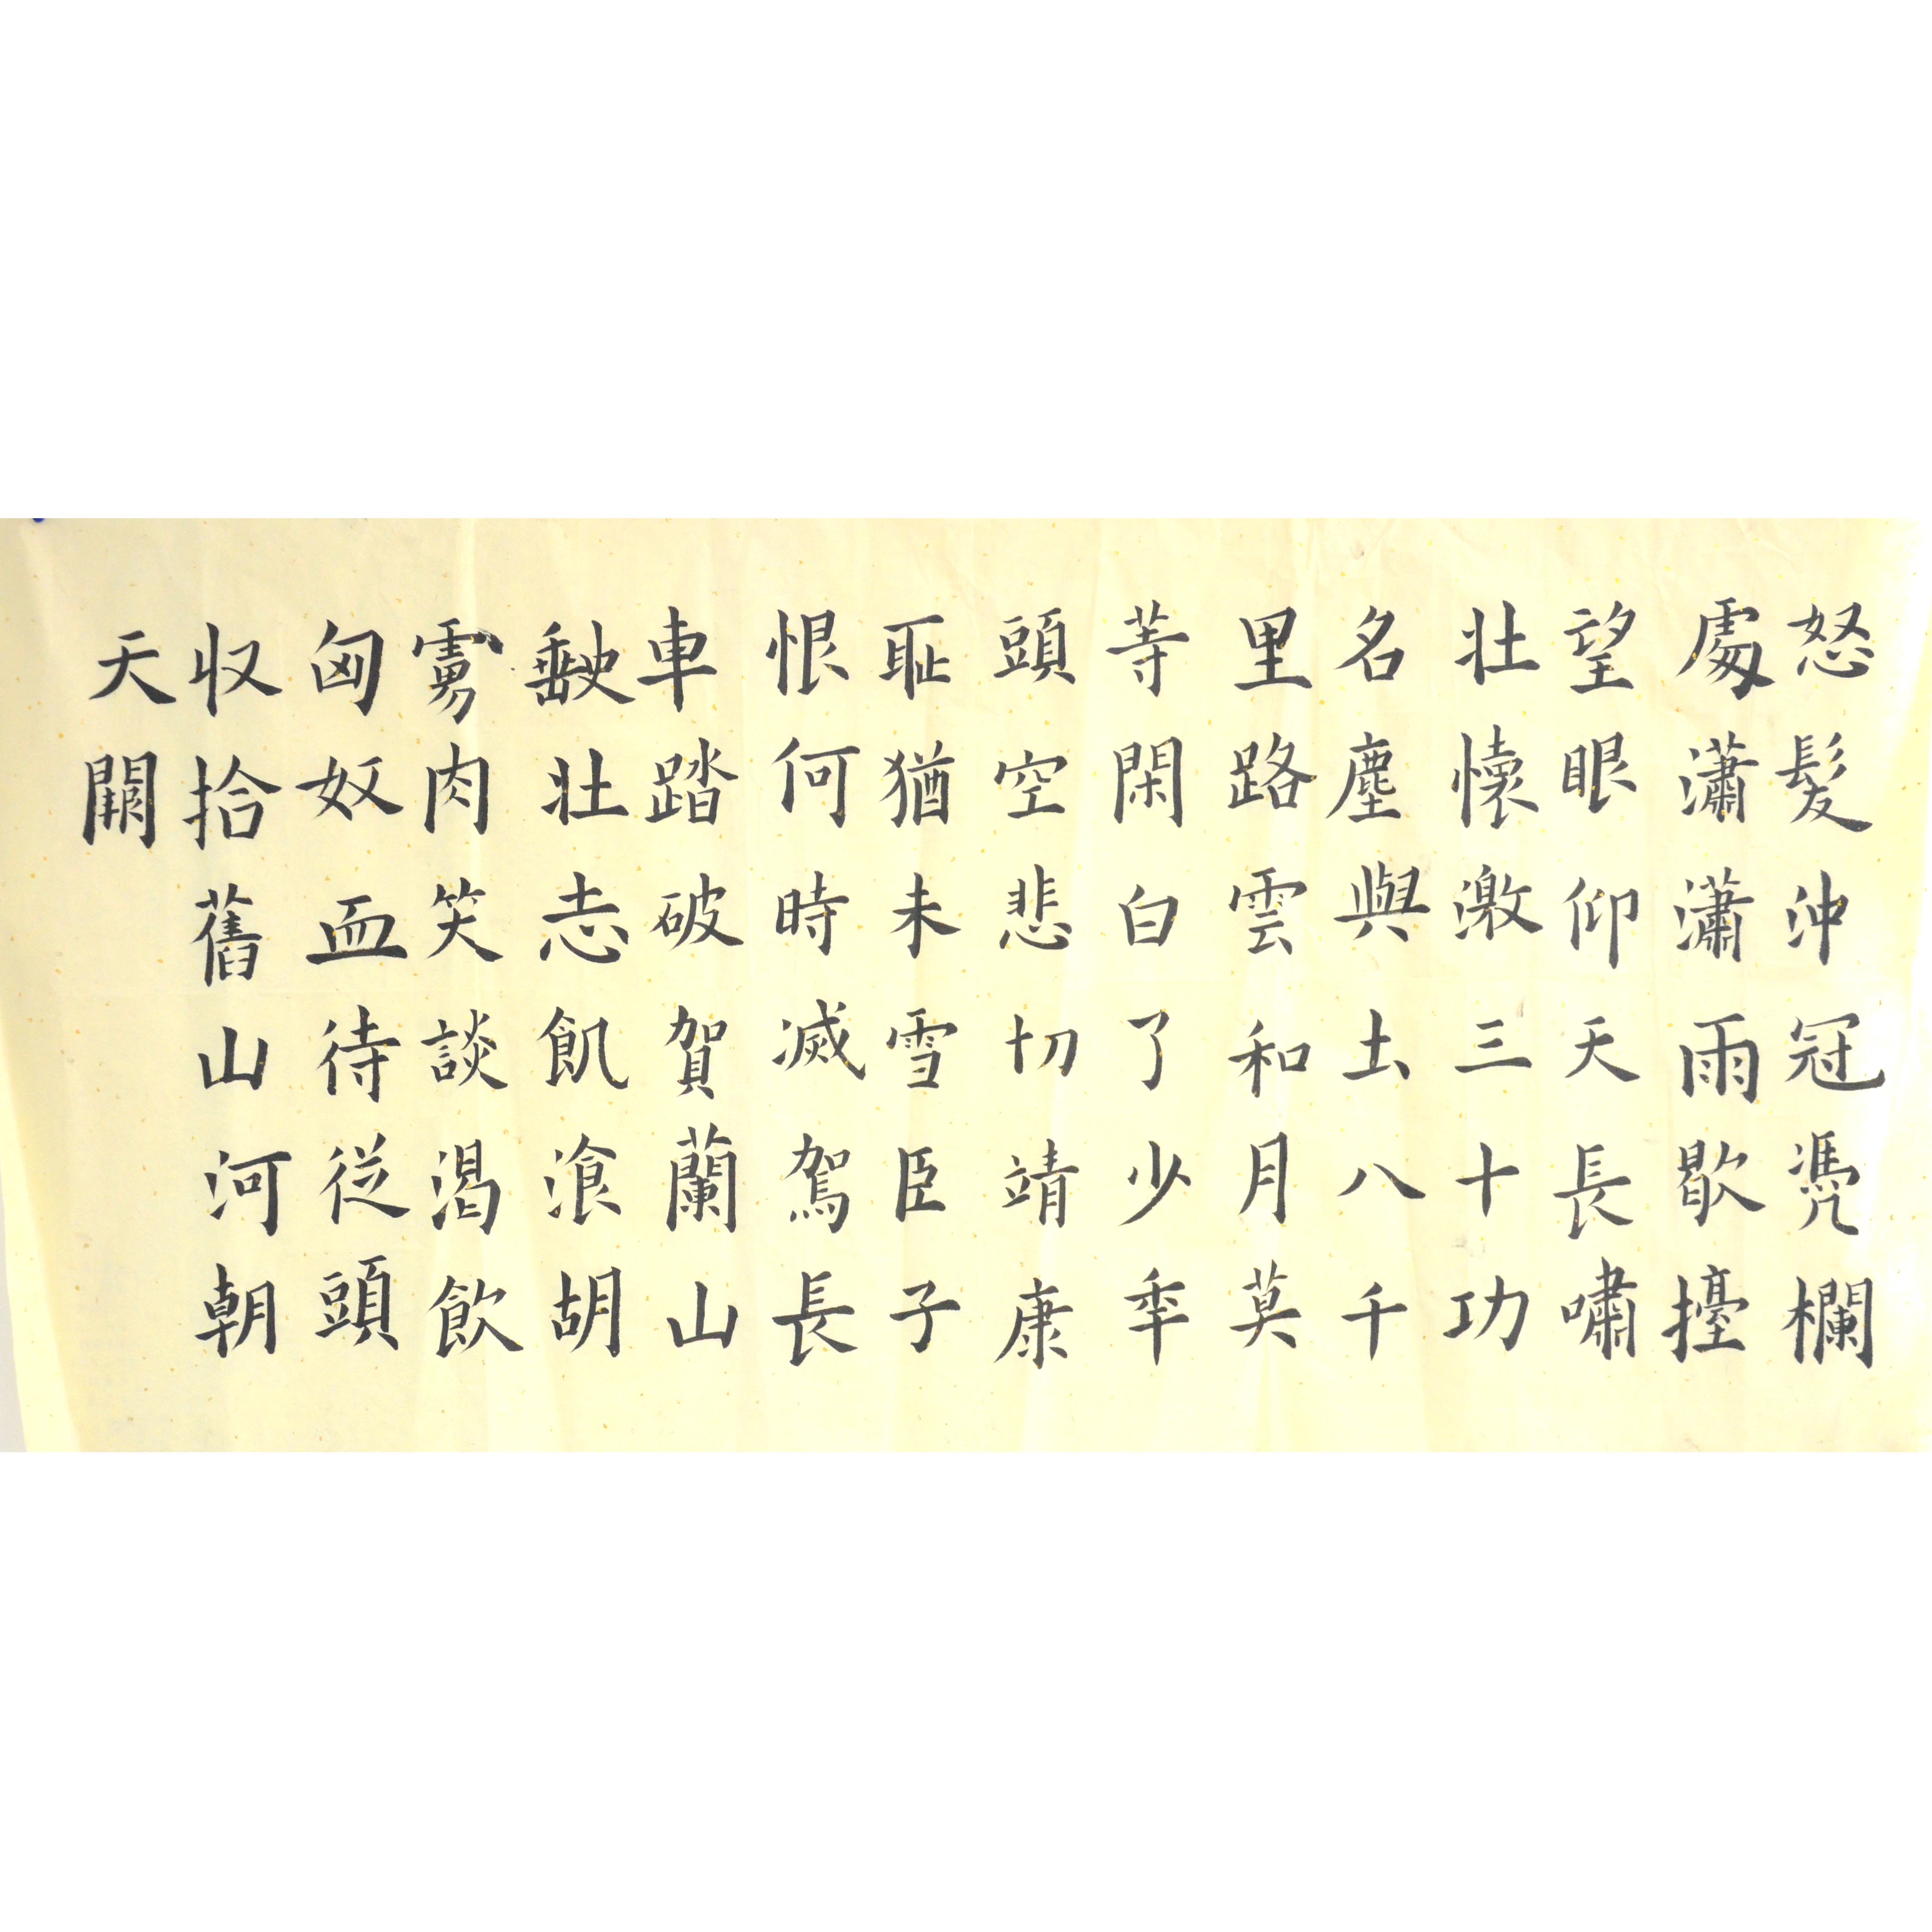 怒髮沖冠凴欄
處瀟瀟雨歇擡
望眼仰天長嘯
壯懷激三十功
名塵與土八千
里路雲和月莫
等閑白了少年
頭空悲切靖康
恥猶未雪臣子
恨何時滅駕長
車踏破賀蘭山
缺壯志飢湌胡
虜肉笑談渴飲
匈奴血待從頭
收拾舊山河朝
天闕